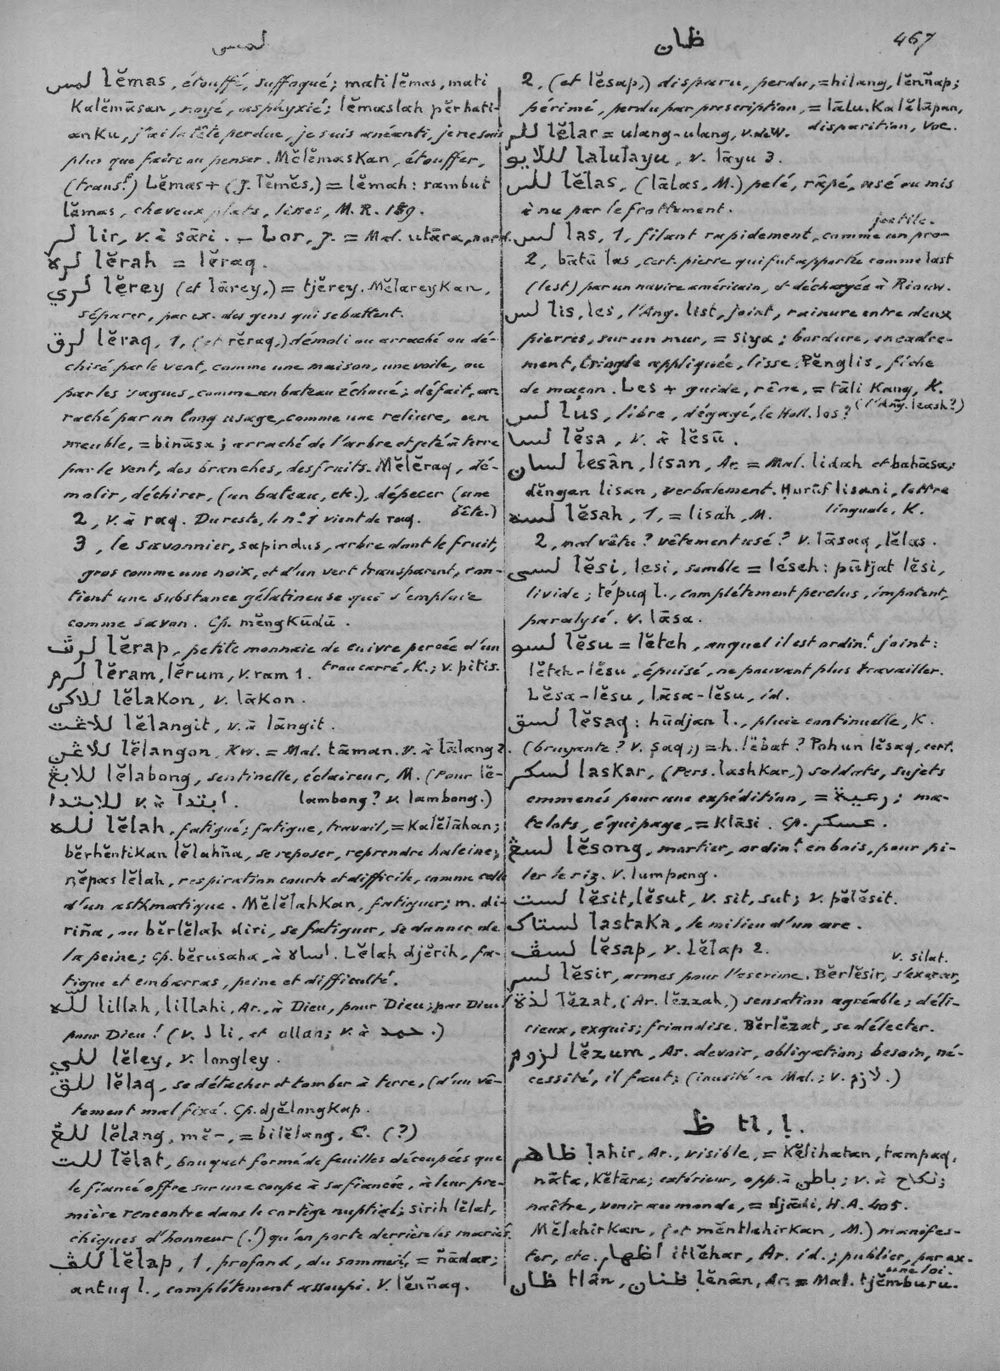 لمس
ظان
467
لمس lĕmas, étouffé, suffoqué; mati lĕmas, mati
Kalĕmāsan, noyé, asphyxié; lĕmaslah pĕrhati-
anKu, j'ai la tête perdue, je suis anéanti, je ne sais
plus que faire ou penser. MĕlĕmasKan, étouffer,
(transf.) Lĕmas + (J. lĕmĕs,) = lĕmah: rambut
lĕmas, cheveux plats, lisses, M.R. 189.
لر lir, v. à sāri. — Lor, J. = Mal. utāra, nord.
لره lĕrah = lĕraq.
لري lĕrey (et lārey,) = tjĕrey. MĕlareyKan,
séparer, par ex. des gens qui se battent.
لرق lĕraq, 1, (et rĕraq,) démoli ou arraché ou dé-
chiré par le vent, comme une maison, une voile, ou
par les vagues, comme un bateau échoué; défait, ar-
raché par un long usage, comme une reliure, un
meuble, = bināsa; arraché de l'arbre et jeté à terre
par le vent, des branches, des fruits. Mĕlĕraq, dé-
molir, déchirer, (un bateau, etc.), dépecer (une
bête.)
2, v. à raq. Du reste, le n.º 1 vient de raq.
3, le savonnier, sapindus, arbre dont le fruit,
gros comme une noix, et d'un vert transparent, con-
tient une substance gélatineuse qui s'emploie
comme savon. Cp. mĕngKūdū.
لرڤ lĕrap, petite monnaie de cuivre percée d'un
trou carré, K.; v. pitis.
لرم lĕram, lĕrum, v. ram 1.
للاکن lĕlaKon, v. lāKon.
للاڠت lĕlangit, v. à lāngit.
للاڠن lĕlangon, Kw. = Mal. tāman. v. à lālang 2.
للابڠ lĕlabong, sentinelle, éclaireur, M. (Pour lĕ-
lambong? v. lambong.)
للابتدا v. à ابتدا.
للـه lĕlah, fatigué; fatigue, travail, = Kalĕlāhan;
bĕrhĕntiKan lĕlahña, se reposer, reprendre haleine;
nĕpas lĕlah, respiration courte et difficile, comme celle
d'un asthmatique. MĕlĕlahKan, fatiguer; m. di-
riña, ou bĕrlĕlah diri, se fatiguer, se donner de
la peine; cp. bĕrusaha, à اساه. Lĕlah djĕrih, fa-
tigue et embarras, peine et difficulté.
للّه lillah, lillahi, Ar., à Dieu, pour Dieu; par Dieu!
pour Dieu! (v. ل li, et allah; v. à حمد.)
للي lĕley, v. longley.
للق lĕlaq, se détacher et tomber à terre, (d'un vê-
tement mal fixé. Cp. djĕlangKap.
للڠ lĕlang, mĕ-, = bilĕlang, C. (?)
للت lĕlat, bouquet formé de feuilles découpées que
le fiancé offre sur une coupe à sa fiancée, à leur pre-
mière rencontre dans le cortège nuptial; sirih lĕlat,
chiques d'honneur (!) qu'on porte derrière les mariés.
للڤ lĕlap, 1, profond, du sommeil, = ñādar;
antuq l., complètement assoupi. V. lĕnñaq.
2, (et lĕsap,) disparu, perdu, = hilang, lĕnñap;
périmé, perdu par prescription, = lālu. Kalĕlāpan,
disparition, Voc.
للر lĕlar = ulang-ulang, v. de W.
للايو lalulayu, v. lāyu 3.
للس lĕlas, (lālas, M.) pelé, râpé, usé ou mis
à nu par le frottement.
لس las, 1, filant rapidement, comme un pro-
jectile.
2, bātū las, cert. pierre qui fut apportée comme last
(lest) par un navire américain, et déchargée à Riouw.
لس lis, les, l'Ang. list, joint, rainure entre deux
pierres, sur un mur, = siya; bordure, encadre-
ment, tringle appliquée, lisse. Pĕnglis, fiche
de maçon. Les + guide, rêne, = tāli Kang, K.
لس lus, libre, dégagé, le Holl. los? (l'Ang. leash?)
لسا lĕsa, v. à lĕsū.
لسان lesân, lisan, Ar. = Mal. lidah et bahāsa;
dĕngan lisan, verbalement. Hurūf lisani, lettre
linguale, K.
لسه lĕsah, 1, = lisah, M.
2, mal vêtu? vêtement usé? v. lāsaq, lĕlas.
لسي lĕsi, lesi, semble = léseh: pūtjat lĕsi,
livide; tépuq l., complètement perclus, impotent,
paralysé. v. lāsa.
لسو lĕsu = lĕtch, auquel il est ordin.t joint:
lĕtch-lĕsu, épuisé, ne pouvant plus travailler.
Lĕsa-lĕsu, lāsa-lĕsu, id.
لسق lĕsaq: hūdjan l., pluie continuelle, K.
(bruyante? v. saq;) = h. lĕbat? Pohun lĕsaq, cert.
لسکر lasKar, (Pers. lashKar,) soldats, sujets
emmenés pour une expédition, = رعية; ma-
telots, équipage, = Klāsi. Cp. عسکر.
لسڠ lĕsong, mortier, ordin.t en bois, pour pi-
ler le riz. v. lumpang.
لست lĕsit, lĕsut, v. sit, sut; v. pĕlĕsit.
لستاک lastaKa, le milieu d'un arc.
لسڤ lĕsap, v. lĕlap 2.
v. silat.
لسر lĕsir, armes pour l'escrime. Bĕrlĕsir, s'exercer,
لذة lĕzat, (Ar. lĕzzah,) sensation agréable; déli-
cieux, exquis; friandise. Bĕrlĕzat, se délecter.
لزوم lĕzum, Ar. devoir, obligation; besoin, né-
cessité, il faut; (inusité en Mal.; v. لازم.)
ظ tl, ḷ.
ظاهر ḷahir, Ar., visible, = Kĕlihatan, tampaq,
nāta, Kĕtāra; extérieur, opp. à باطن; v. à نکاح;
naître, venir au monde, = djādi, H.A. 405.
MĕlahirKan, (et mĕntlahirKan, M.) manifes-
ter, etc. اظهار itlĕhar, Ar. id.; publier, par ex.
une loi.
ظان tlân, ظنان ḷĕnân, Ar. = Mal. tjĕmburu.